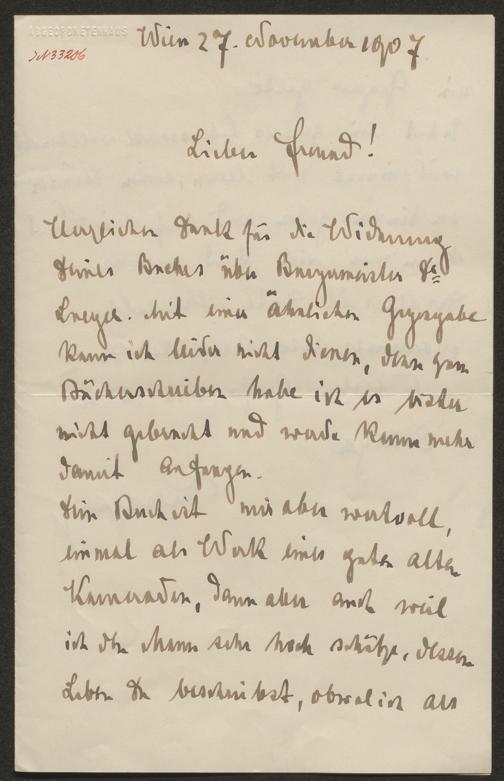 ABGEORDNETENHAUS
JN 33206
Wien 27. November 1907
Lieber Freund!
Herzlichen Dank für die Widmung
Deines Buches über Burgermeister Dr
Lueger. Mit einer ähnlichen Gegengabe
kann ich leider nicht dienen, denn zum
Bücherschreiben habe ich es bisher
nicht gebracht und werde kaum mehr
damit anfangen.
Dein Buch ist mir aber wertvoll,
einmal als Werk eines guten alten
Kameraden, dann aber auch weil
ich den Mann sehr hoch schätze, dessen
Leben Du beschreibst, obwol ich als